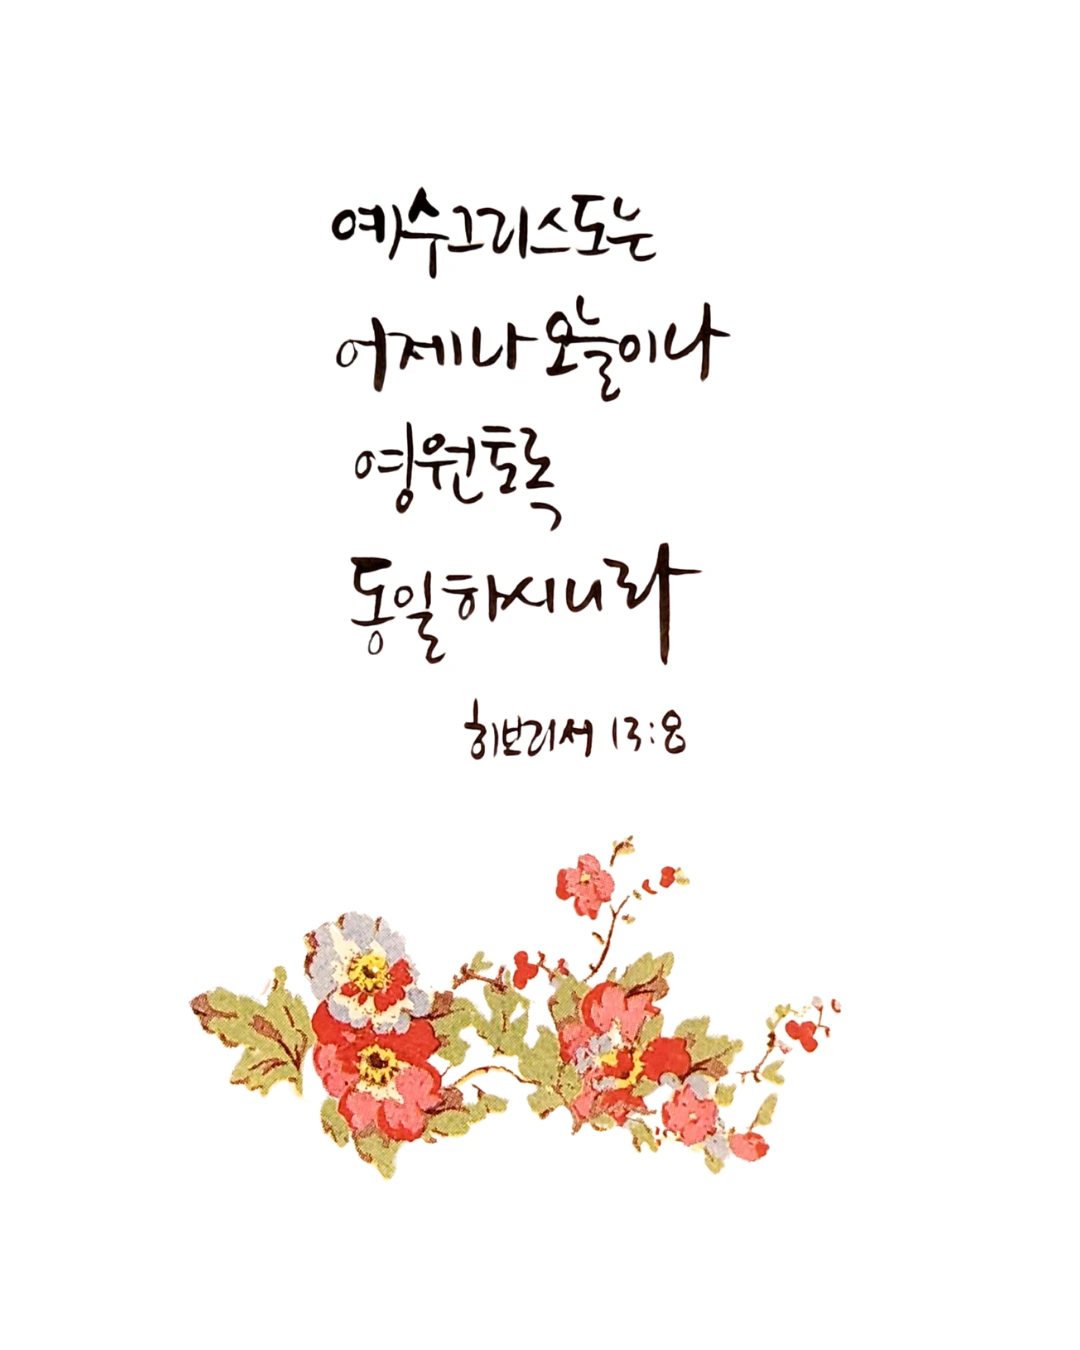 예수그리스도는
어제나 오늘이나
영원토록
동일하시니라
히브리서 13:8